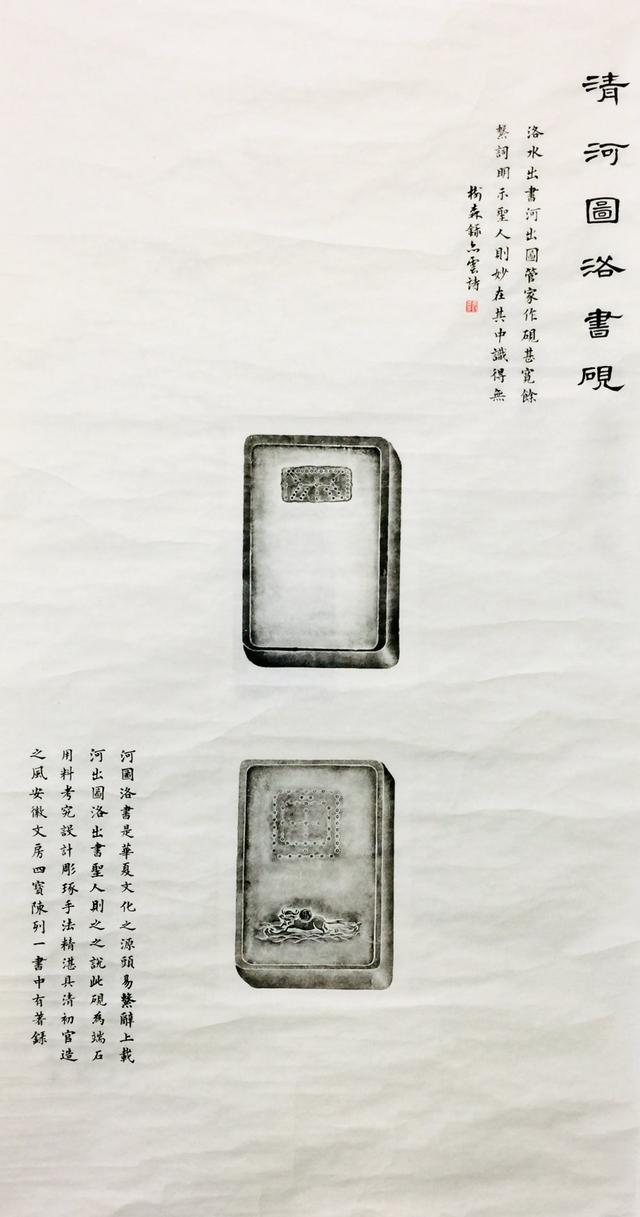 清河圖洛書硯
洛水出書河出圖管家作硯甚寬餘
繫詞明示聖人則妙在其中識得無
樹森錄亦雲詩
河圖洛書是華夏文化之源頭易繫辭上載
河出圖洛出書聖人則之之說此硯為端石
用料考究設計彫琢手法精湛具清初官造
之風安徽文房四寶陳列一書中有著錄